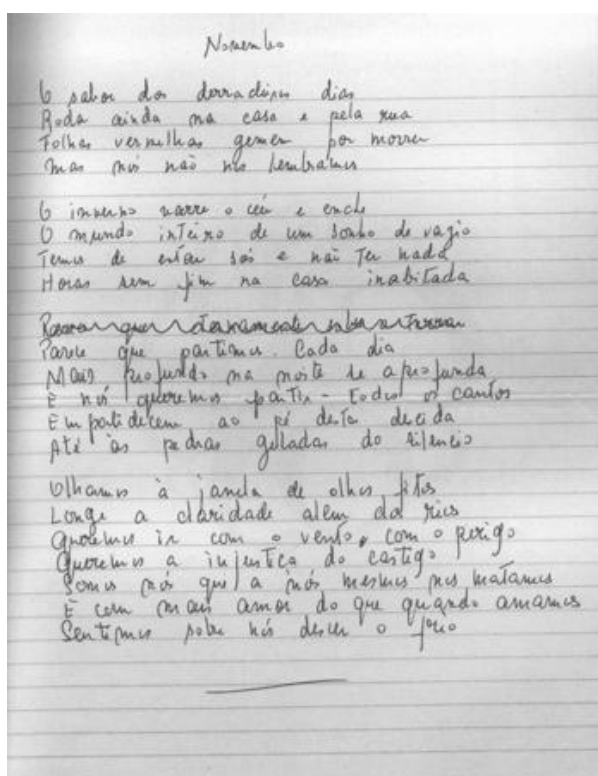 Novembro
O sabor dos derradeiros dias
Roda ainda na casa e pela rua
Folhas vermelhas gemem por morrer
Mas nós não nos lembramos
O inverno varre o céu e enche
O mundo inteiro de um sonho de vazio
Temos de estar sós e não ter nada
Horas sem fim na casa inabitada
Parece que partimos. Cada dia
Mais profundo na noite se aprofunda
E nós queremos partir - todos os cantos
Empalidecem ao pé desta decida
Até às pedras geladas do silencio
Olhamos à janela de olhos fitos
Longe a claridade alem dos rios
Queremos ir com o vento, com o perigo
Queremos a injustiça do castigo
Somos nós que a nós mesmos nos matamos
E com mais amor do que quando amamos
Sentimos sobre nós descer o frio